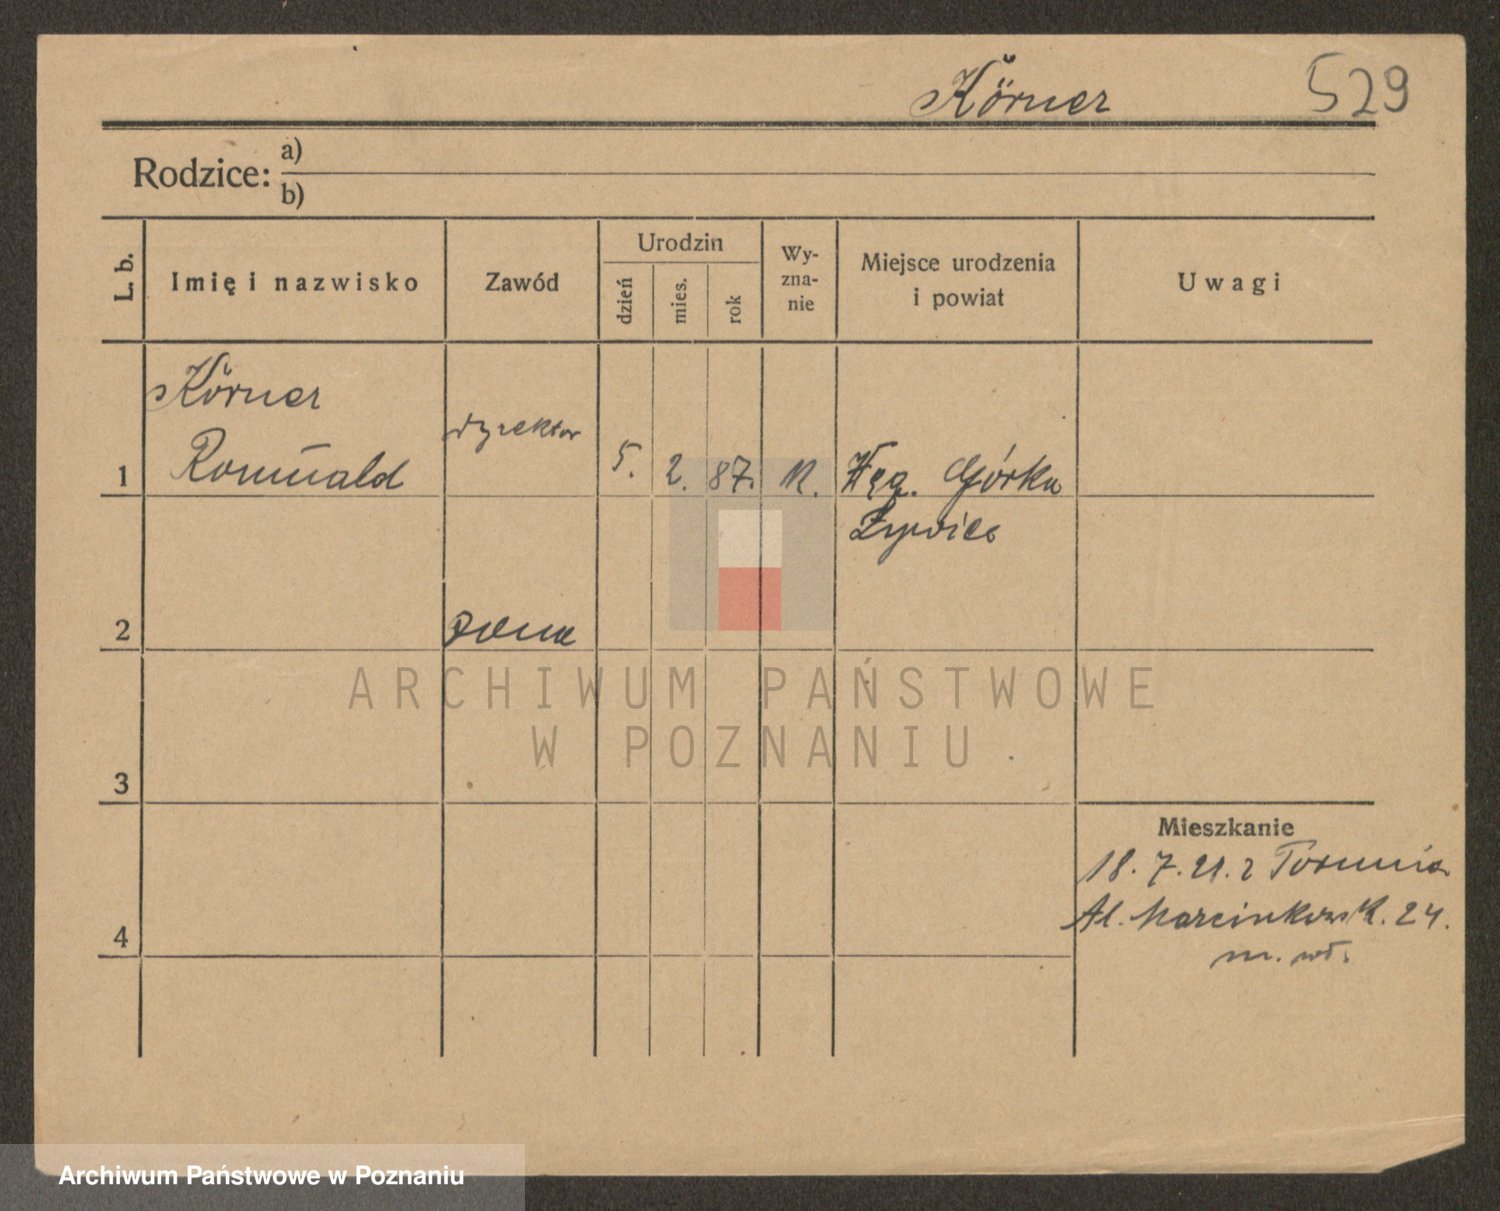 Körner 529
Rodzice: a)
b)
L. b. Imię i nazwisko Zawód Urodzin dzień mies. rok Wy-zna-nie Miejsce urodzenia i powiat Uwagi
Körner
dyrektor
1 Romuald 5. 2. 87. Węg. Górka
Żywiec
2 żona
ARCHIWUM PAŃSTWOWE
W POZNANIU
3
Mieszkanie
18. 7. 21. z Torunia
4 Al. Marcinkowsk. 24.
m. wł.
Archiwum Państwowe w Poznaniu